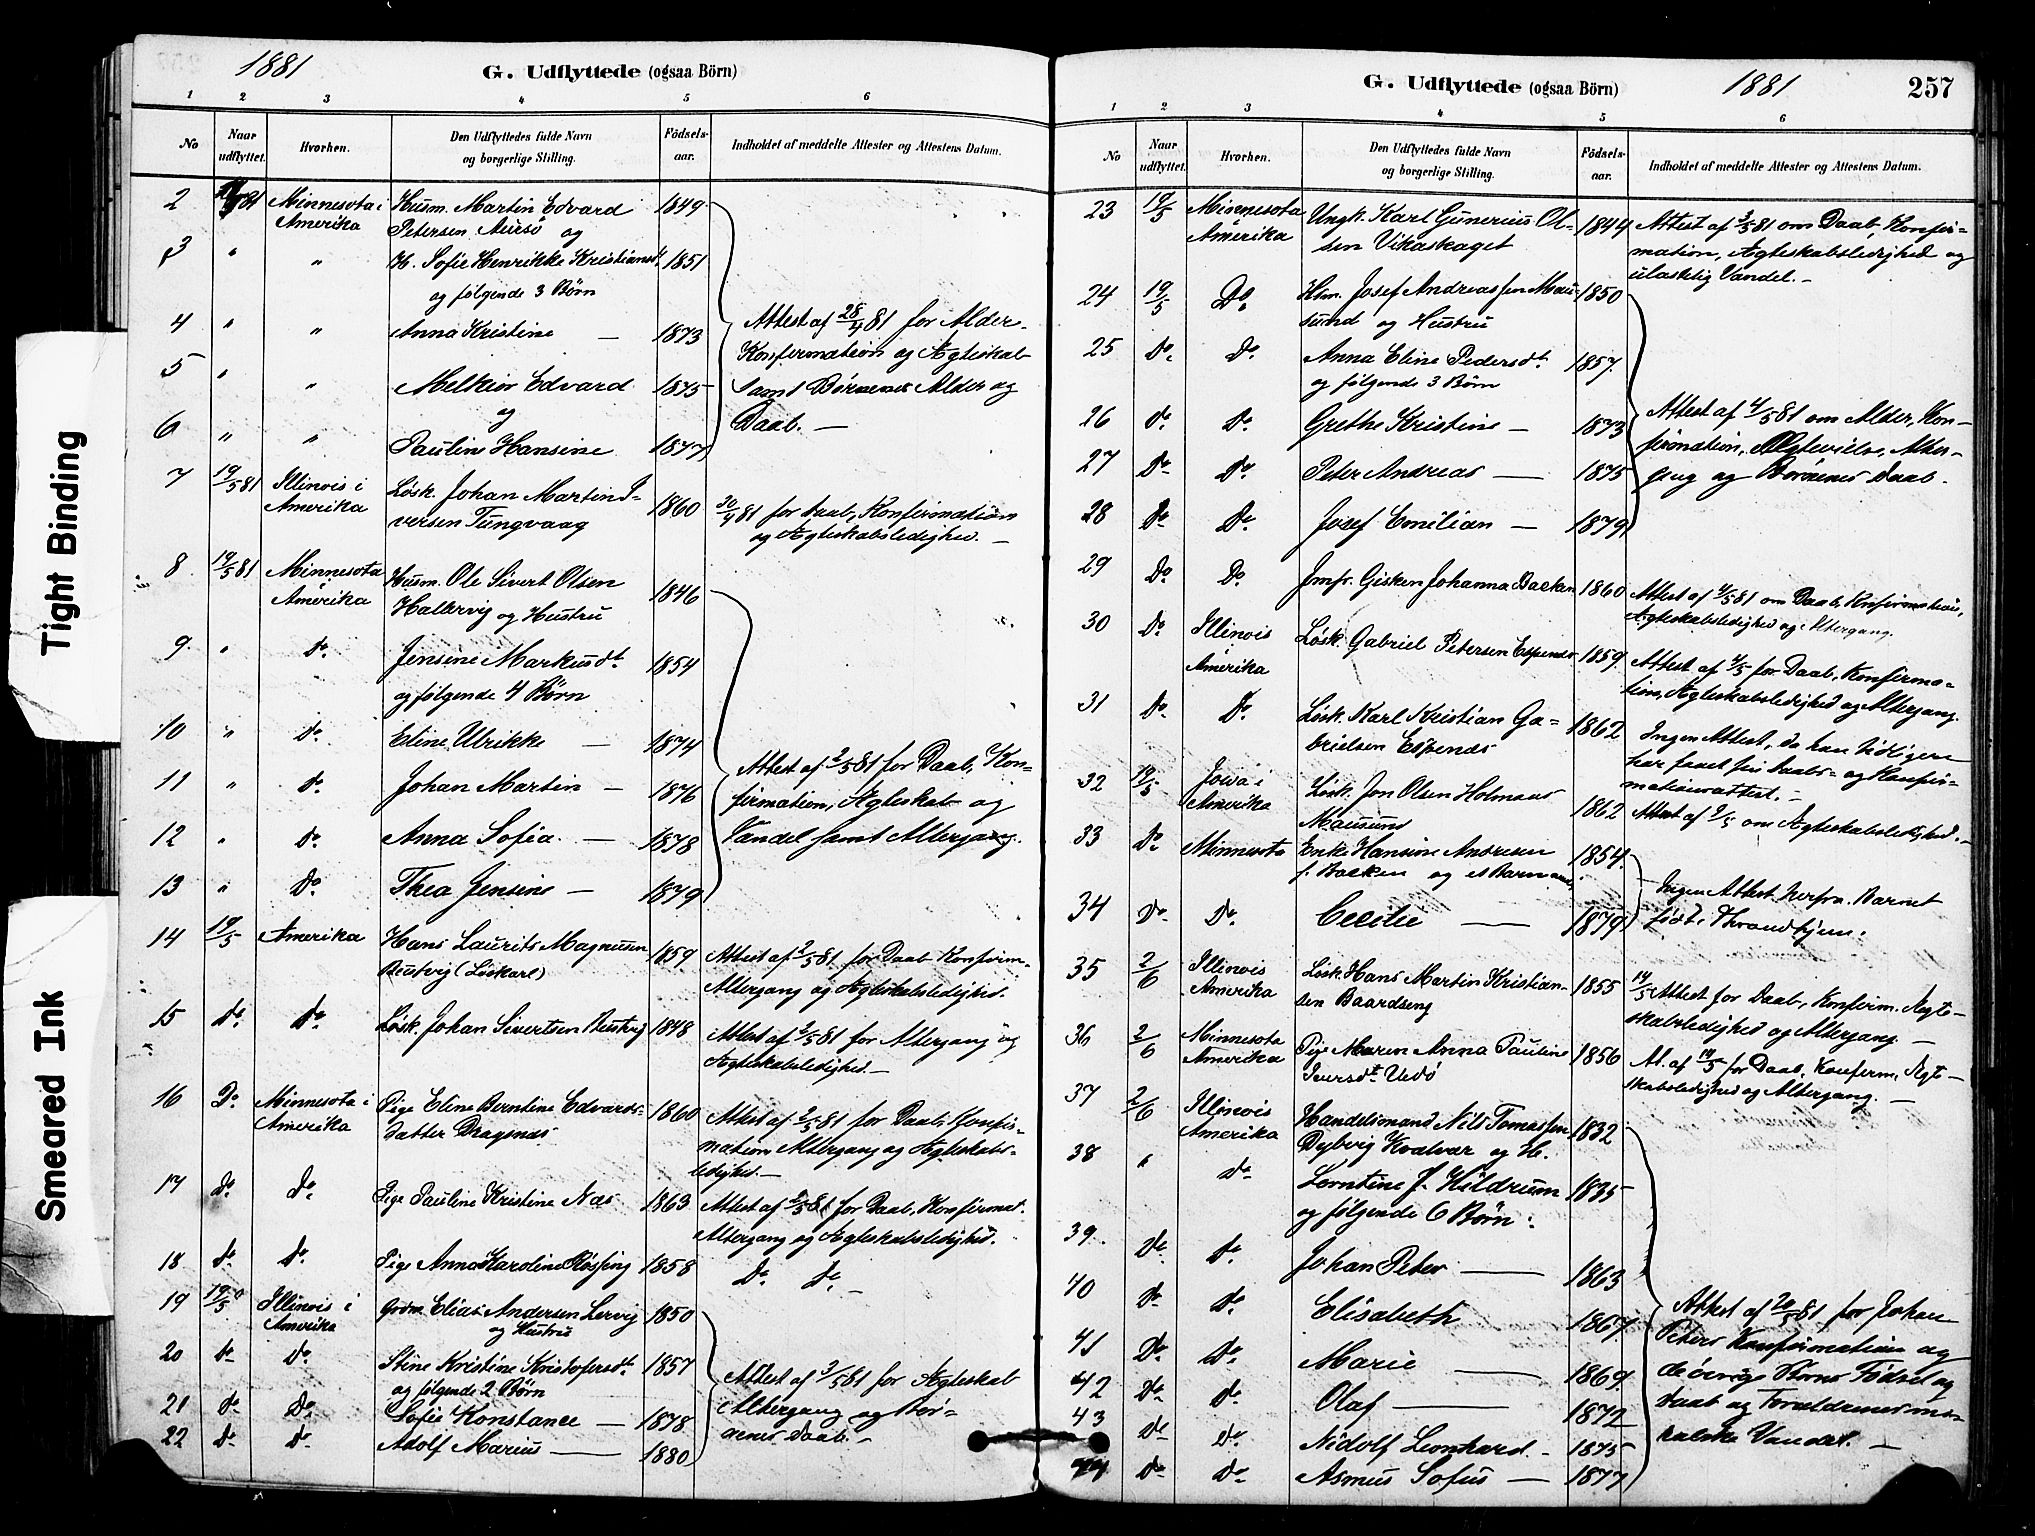 1881
G. Udflyttede (ogsaa Börn)
1 2 3 4 5 6
No
Naar udflyttet.
Hvorhen.
Den Udflyttedes fulde Navn og borgerlige Stilling.
Födsels-aar.
Indholdet af meddelte Attester og Attestens Datum.
2 Minnesota i Husm. Martin Edvard 1849
Amerika Petersen Aursö og
3 " " H. Sofie Henrikke Kristiansdt. 1851
og følgende 3 Børn
4 " " Anna Kristine — 1873
5 " " Melkior Edvard 1875
og
6 " " Pauline Hansine 1877
Attest af 28/4 81 for Alder
Konfirmation og Ægteskab
samt Børnenes Alder og
Daab. —
7 19/5 81 Illinois i Løsk. Johan Martin I- 1860 30/4 81 for Daab, Konfirmation
Amerika versen Tungvaag og Ægteskabsledighed. —
8 19/5 81 Minnesota Husm. Ole Sivert Olsen 1846
Amerika Hallervig og Hustru
9 " do. Jensine Markusdt. 1854
og følgende 4 Børn
10 " do. Eline Ulrikke — 1874
11 " do. Johan Martin — 1876
12 " do. Anna Sofia — 1878
13 " Do. Thea Jensine — 1879
Attest af 2/5 81 for Daab, Kon-
firmation, Ægteskab og
Vandel samt Altergang.
14 19/5 Amerika Hans Laurits Magnusen 1859 Attest af 2/5 81 for Daab Konfirm.
(Løskarl) Altergang og Ægteskabsledighed.
15 do. do. Løsk. Johan Sivertsen 1848 Attest af 2/5 81 for Altergang og
Ægteskabsledighed. —
16 Do. Minnesota i Pige Eline Berntine Edvards- 1860 Attest af 2/5 81 for Daab, Konfir-
Amerika datter Dragsnæs mation Altergang og Ægteskabs-
ledighed. —
17 do. do. Pige Pauline Kristine Næs 1863 Attest af 2/5 81 for Daab, Konfirmat.
Altergang og Ægteskabsledighed.
18 do. do. Pige Anna Karoline Røssing 1858 Do. do. —
19 19/5 Illinois i Elias Andersen Lervig 1850
Amerika og Hustru
20 do. Do. Stine Kristine Kristofersdt. 1857
og følgende 2 Børn
21 do. Do. Sofie Konstance — 1878
22 do. Do. Adolf Marius — 1880
Attest af 3/5 81 for Ægteskab
Altergang og Bør-
nenes Daab. —
G. Udflyttede (ogsaa Börn)
1881
257
1 2 3 4 5 6
No
Naar udflyttet.
Hvorhen.
Den Udflyttedes fulde Navn og borgerlige Stilling.
Födsels-aar.
Indholdet af meddelte Attester og Attestens Datum.
23 19/5 Minnesota Ungk. Karl Gunerius Ol- 1844 Attest af 3/5 81 om Daab, Konfir-
Amerika sen Vikaskaget mation, Ægteskabsledighed og
ulastelig Vandel. —
24 19/5 Do. Hsm. Josef Andreassen Mau- 1850
sund og Hustru
25 Do. Do. Anna Eline Pedersdt. 1857
og følgende 3 Børn
26 do. Do. Grethe Kristine — 1873
27 Do. Do. Peter Andreas — 1875
28 Do. Do. Josef Emilian — 1879
Attest af 4/5 81 om Alder, Kon-
firmation, Ægtevielse, Alter-
gang og Børnenes Daab.
29 Do. Do. Jmfr. Gisken Johanna Bakken 1860 Attest af 4/5 81 om Daab, Konfirmation,
Ægteskabsledighed og Altergang.
30 Do. Illinois Løsk. Gabriel Petersen Espenæs 1859 Attest af 4/5 for Daab, Konfirma-
Amerika tion, Ægteskabsledighed og Altergang.
31 Do. Do. Løsk. Karl Kristian Ga- 1862 Ingen Attest, da han tidligere
brielsen Espenæs har faaet sin Daabs- og Konfir-
mationsattest. —
32 19/5 Jowa i Løsk. Jon Olsen Holmaas 1862 Attest af 9/5 om Ægteskabsledighed. —
Amerika Mausund
33 Do. Minnesota Enke Hansine Andresen 1854
f. Bakken og et Barn
34 Do. Do. Cecilie — 1879
Ingen Attest herfra. Barnet
født i Throndhjem.
35 2/6 Illinois Løsk. Hans Martin Kristian- 1855 14/5 Attest for Daab, Konfirm. Ægte-
Amerika sen Baardseng skabsledighed og Altergang. —
36 2/6 Minnesota Pige Maren Anna Pauline 1856 At. af 19/5 for Daab, Konfirm, Ægte-
Amerika Iversdt. Uedö skabsledighed og Altergang. —
37 2/6 Illinois Handelsmand Nils Tomassen 1832
Amerika Dybvig Kvalvær og H.
38 " do. Lorntine f. Hildrum 1835
og følgende 6 Børn:
39 Do. do. Johan Peter — 1863
40 do. do. Elisabeth 1867
41 Do. Do. Marie — 1869
42 Do. do. Olaf — 1872
43 do. do. Nidolf Leonhard — 1875
44 do. do. Asmus Sofus — 1877
Attest af 20/5 81 for Johan
Peters Konfirmation og
de övrige Börns Födsel og
Daab og Forældrenes mo-
ralske Vandel. —
Tight Binding
Smeared Ink